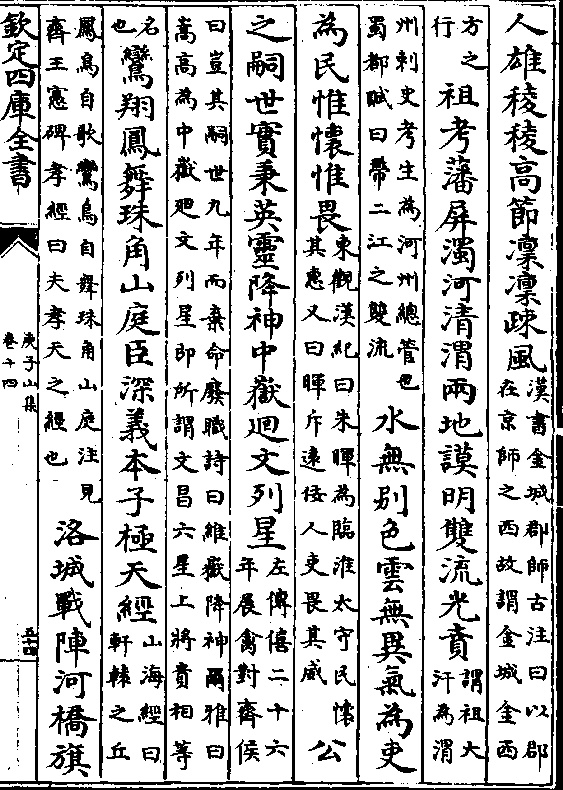 人雄稜稜高節凜凜踈風漢書金城郡師古注曰以郡
在京師之西故謂金城金西
方之
行祖考藩屏濁河清渭兩地謨明雙流光賁謂祖大
汗為渭
州刺史考生為河州總管也
蜀都賦曰帶二江之雙流水無别色雲無異氣為吏
為民惟懷惟畏東觀漢紀曰朱暉為臨淮太守民懐
其惠又曰暉斥遠佞人吏畏其威公
之嗣世實秉英靈降神中嶽廻文列星左傳僖二十六
年展禽對齊侯
曰豈其嗣世九年而棄命廢職詩曰維嶽降神爾雅曰
嵩高為中嶽廻文列星即所謂文昌六星上將貴相等
也鸞翔鳳舞珠角山庭臣深義本子極天經山海經曰
名
軒轅之丘
鳳鳥自歌鸞鳥自舞珠角山庭注見
齊王憲碑孝經曰夫孝天之經也洛城戰陣河橋旗
欽定四庫全書
庾子山集
卷十四
五十四